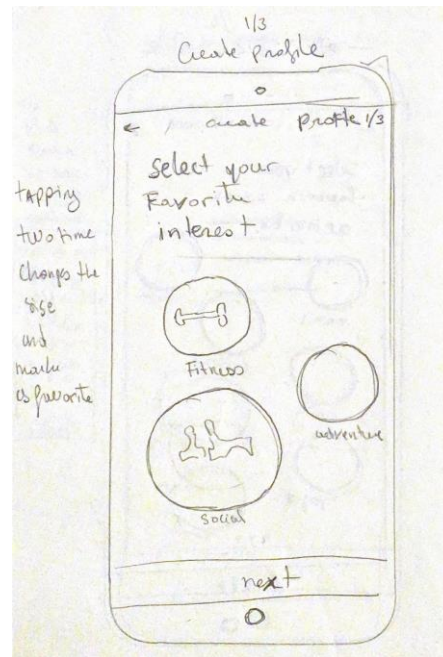 1/3
Create profile
← create profile 1/3
Select your
Favorite
interest
tapping
two time
changes the
size
and
mark
as favorite
Fitness
adventure
social
next